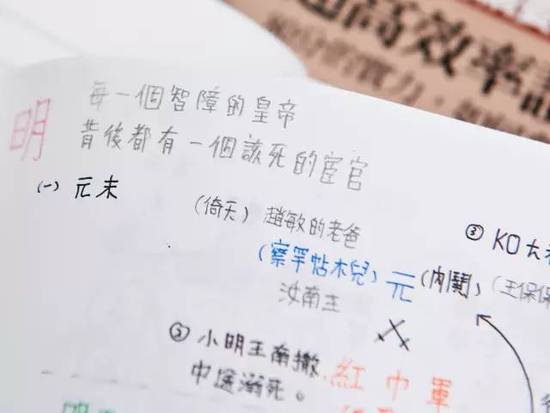 高效率
明
每一個智障的皇帝
背後都有一個該死的宦官
(一) 元末
(倚天) 趙敏的老爸
③ KO大
(察罕帖木兒) 元 (內鬨) (王保保
汝南王
③ 小明王南撤
中途溺死。
紅巾軍